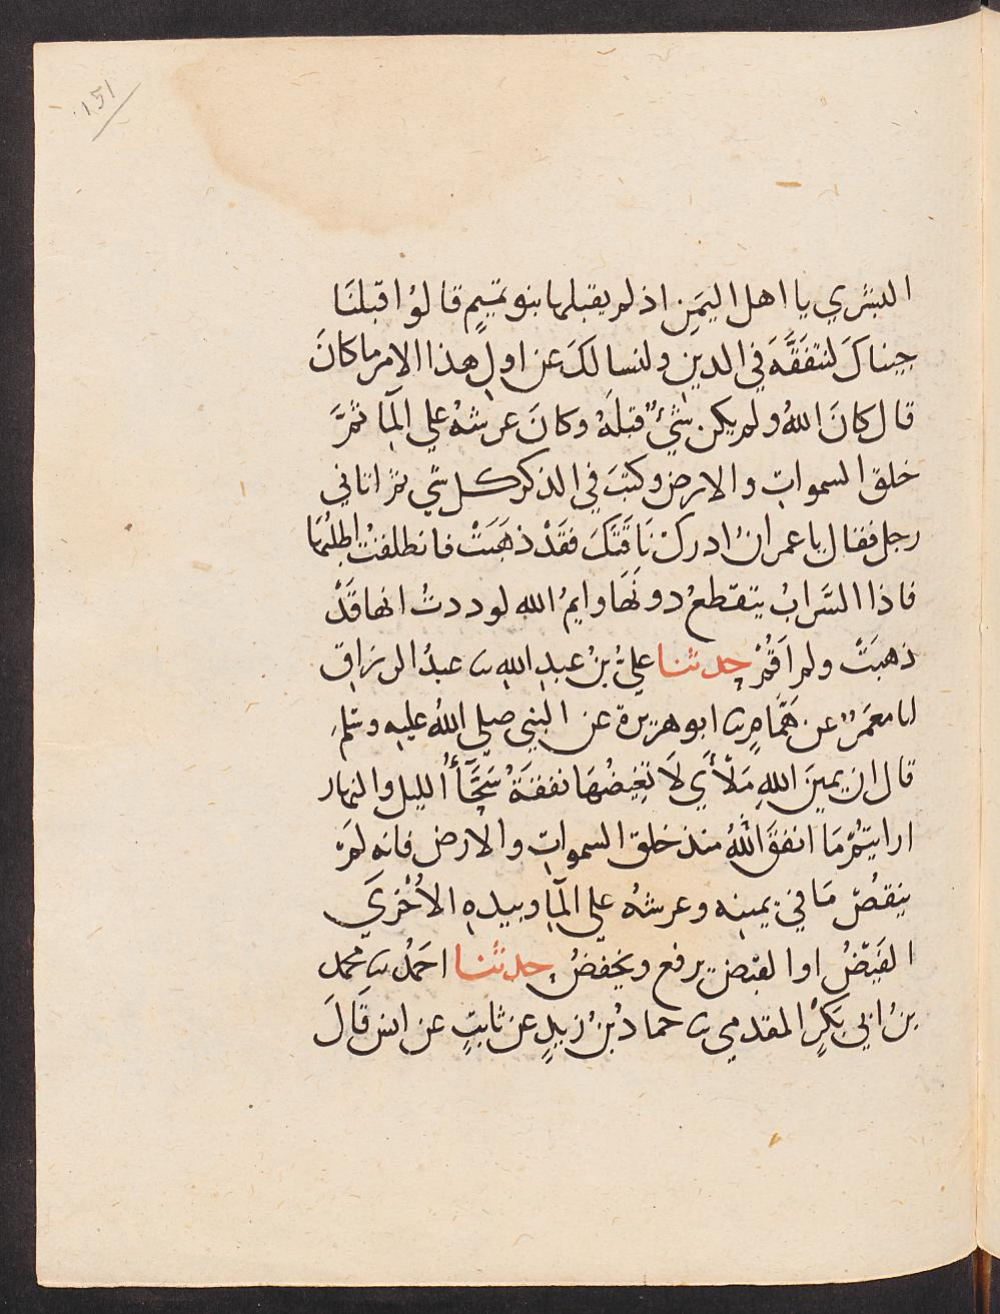 151
البشري يا اهل اليمَنِ اذ لم يقبلها بنو تميمٍ قالوُا قبلنَا
جيناكَ لنتفَقَّهَ في الدينِ ولنسالكَ عن اولِ هذا الامر ما كانَ
قال كانَ اللهُ ولم يكن شَيءٌ قبلَهُ وكانَ عرشهُ علي المآ ثمَّ
خلق السمواتِ والارض وكتبَ في الذكر كل شي ثم اتاني
رجل فقال يا عمرانُ ادركْ نَاقَتَكَ فقَدْ ذهَبَتْ فانطلقتُ اطلبُهَا
فاذا السَّرابُ يتقطعُ دونَهَا وايمُ الله لوددتُ انها قَدْ
ذهبَتْ ولم اَقُمْ حدثنا عليُّ بنُ عبدِ اللهِ ثنا عبدُ الرزاقِ
انا معمَرٌ عن هَمَّامٍ ثنا ابو هريرة عن النبي صلي اللهُ عليهِ وسَلم
قال ان يمينَ اللهِ مَلْأَي لَا تَغِيضُهَا نفقَةٌ سَحَّآءُ الليل والنهار
ارايتُمْ مَا انفقَ اللهُ منذ خلق السمواتِ والارض فانه لمَْ
ينقصْ مَا في يمينِه وعرشهُ علي المآ وبيدهِ الاُخْرَي
الفَيْضُ او القبض يرفع ويخفضُ حدثنا احمَدُ ثنا محمد
بنُ ابي بَكرٍ المقدمي ثنا حماد بْنُ زيدٍ عن ثابتٍ عن انس قَالَ